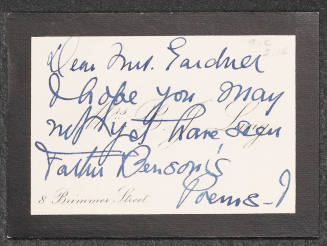 Dear Mrs. Gardner
I hope you may
not yet have seen
Father Benson's
Poems - I
8 Brimmer Street